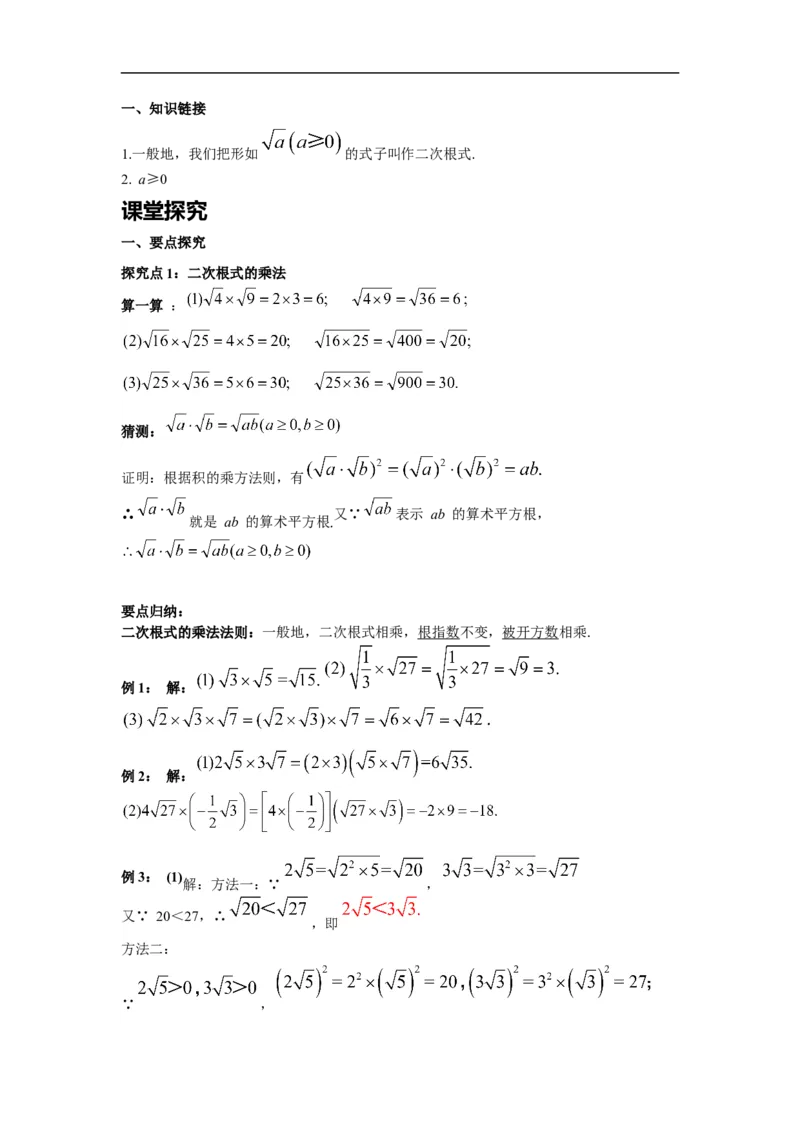 一、知识链接
1.一般地，我们把形如 √a(a≥0) 的式子叫作二次根式.
2. a≥0
课堂探究
一、要点探究
探究点1：二次根式的乘法
算一算 ：(1)√4×√9=2×3=6; √4×9=√36=6;
(2)√16×√25=4×5=20; √16×25=√400=√20;
(3)√25×√36=5×6=30; √25×36=√900=30.
猜测：√a·√b=√ab(a≥0,b≥0)
证明：根据积的乘方法则，有 (√a·√b)²=(√a)²·(√b)²=ab.
∴ √a·√b 就是 ab 的算术平方根. 又∵ √ab 表示 ab 的算术平方根，
∴√a·√b=√ab(a≥0,b≥0)
要点归纳：
二次根式的乘法法则：一般地，二次根式相乘，根指数不变，被开方数相乘.
例1： 解：(1)√3×√5=√15. (2)√(1/3)×√27=√(1/3×27)=√9=3.
(3)√2×√3×√7=(√2×√3)×√7=√6×√7=√42.
例2： 解：(1)2√5×3√7=(2×3)(√5×√7)=6√35.
(2)4√27×(-1/2√3)=[4×(-1/2)](√27×√3)=-2×9=-18.
例3： (1)解：方法一：∵ 2√5=√2²×5=√20 ， 3√3=√3²×3=√27
又∵ 20＜27，∴ √20＜√27 ，即 2√5＜3√3.
方法二：
∵ 2√5>0,3√3>0 ， (2√5)²=2²×(√5)²=20,(3√3)²=3²×(√3)²=27;